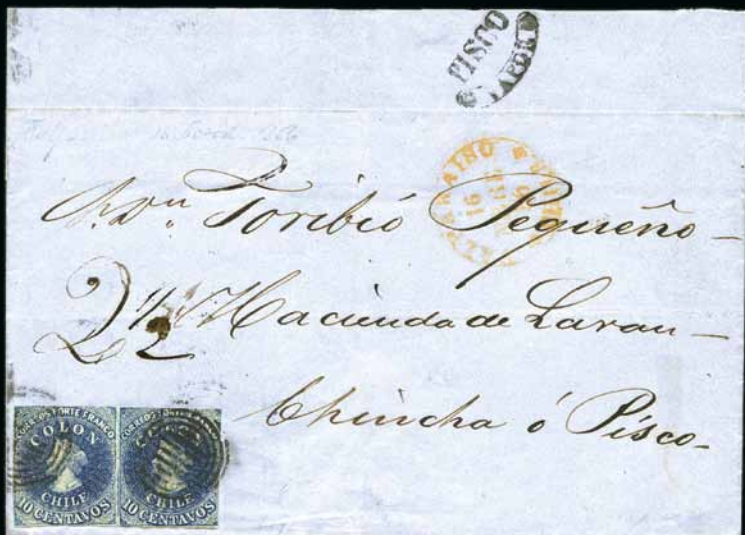 PISCO
VAPOR
VALPARAISO
16
Sr. Dn Toribio Pequeño
2 1/2 Hacienda de Laran
Chincha ó Pisco
CORREOS PORTE FRANCO
COLON
CHILE
10 CENTAVOS
CORREOS PORTE FRANCO
COLON
CHILE
10 CENTAVOS